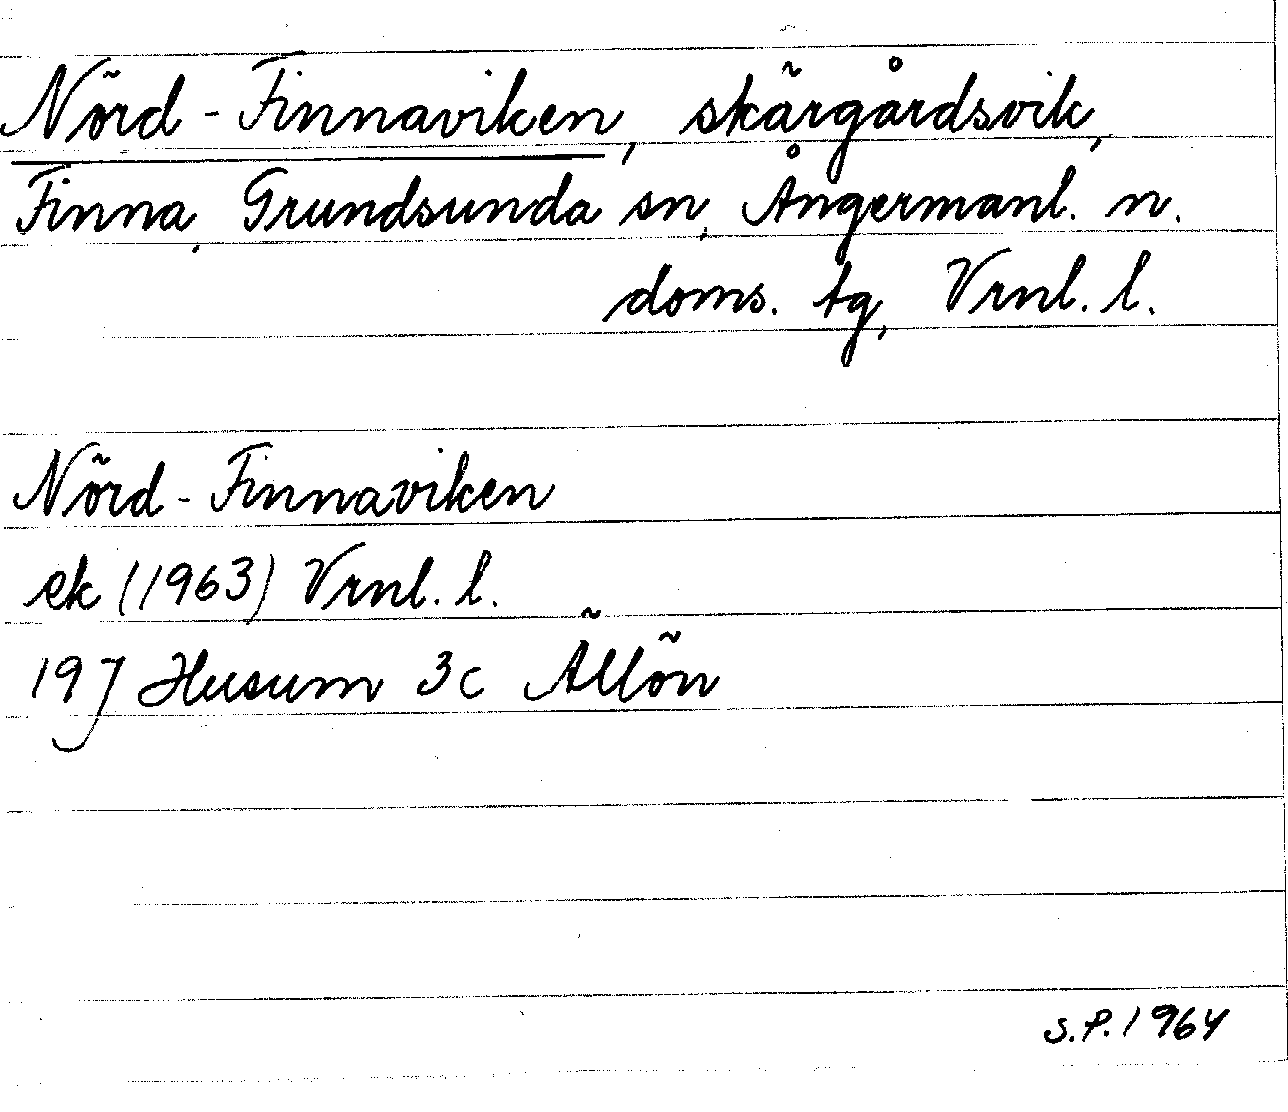 Nörd-Finnaviken, skärgårdsvik,
Finna, Grundsunda sn, Ångermanl. n.
doms. tg, Vrnl. l.
Nörd-Finnaviken
ek (1963) Vrnl. l.
19J Husum 3c Ällön
S.P. 1964